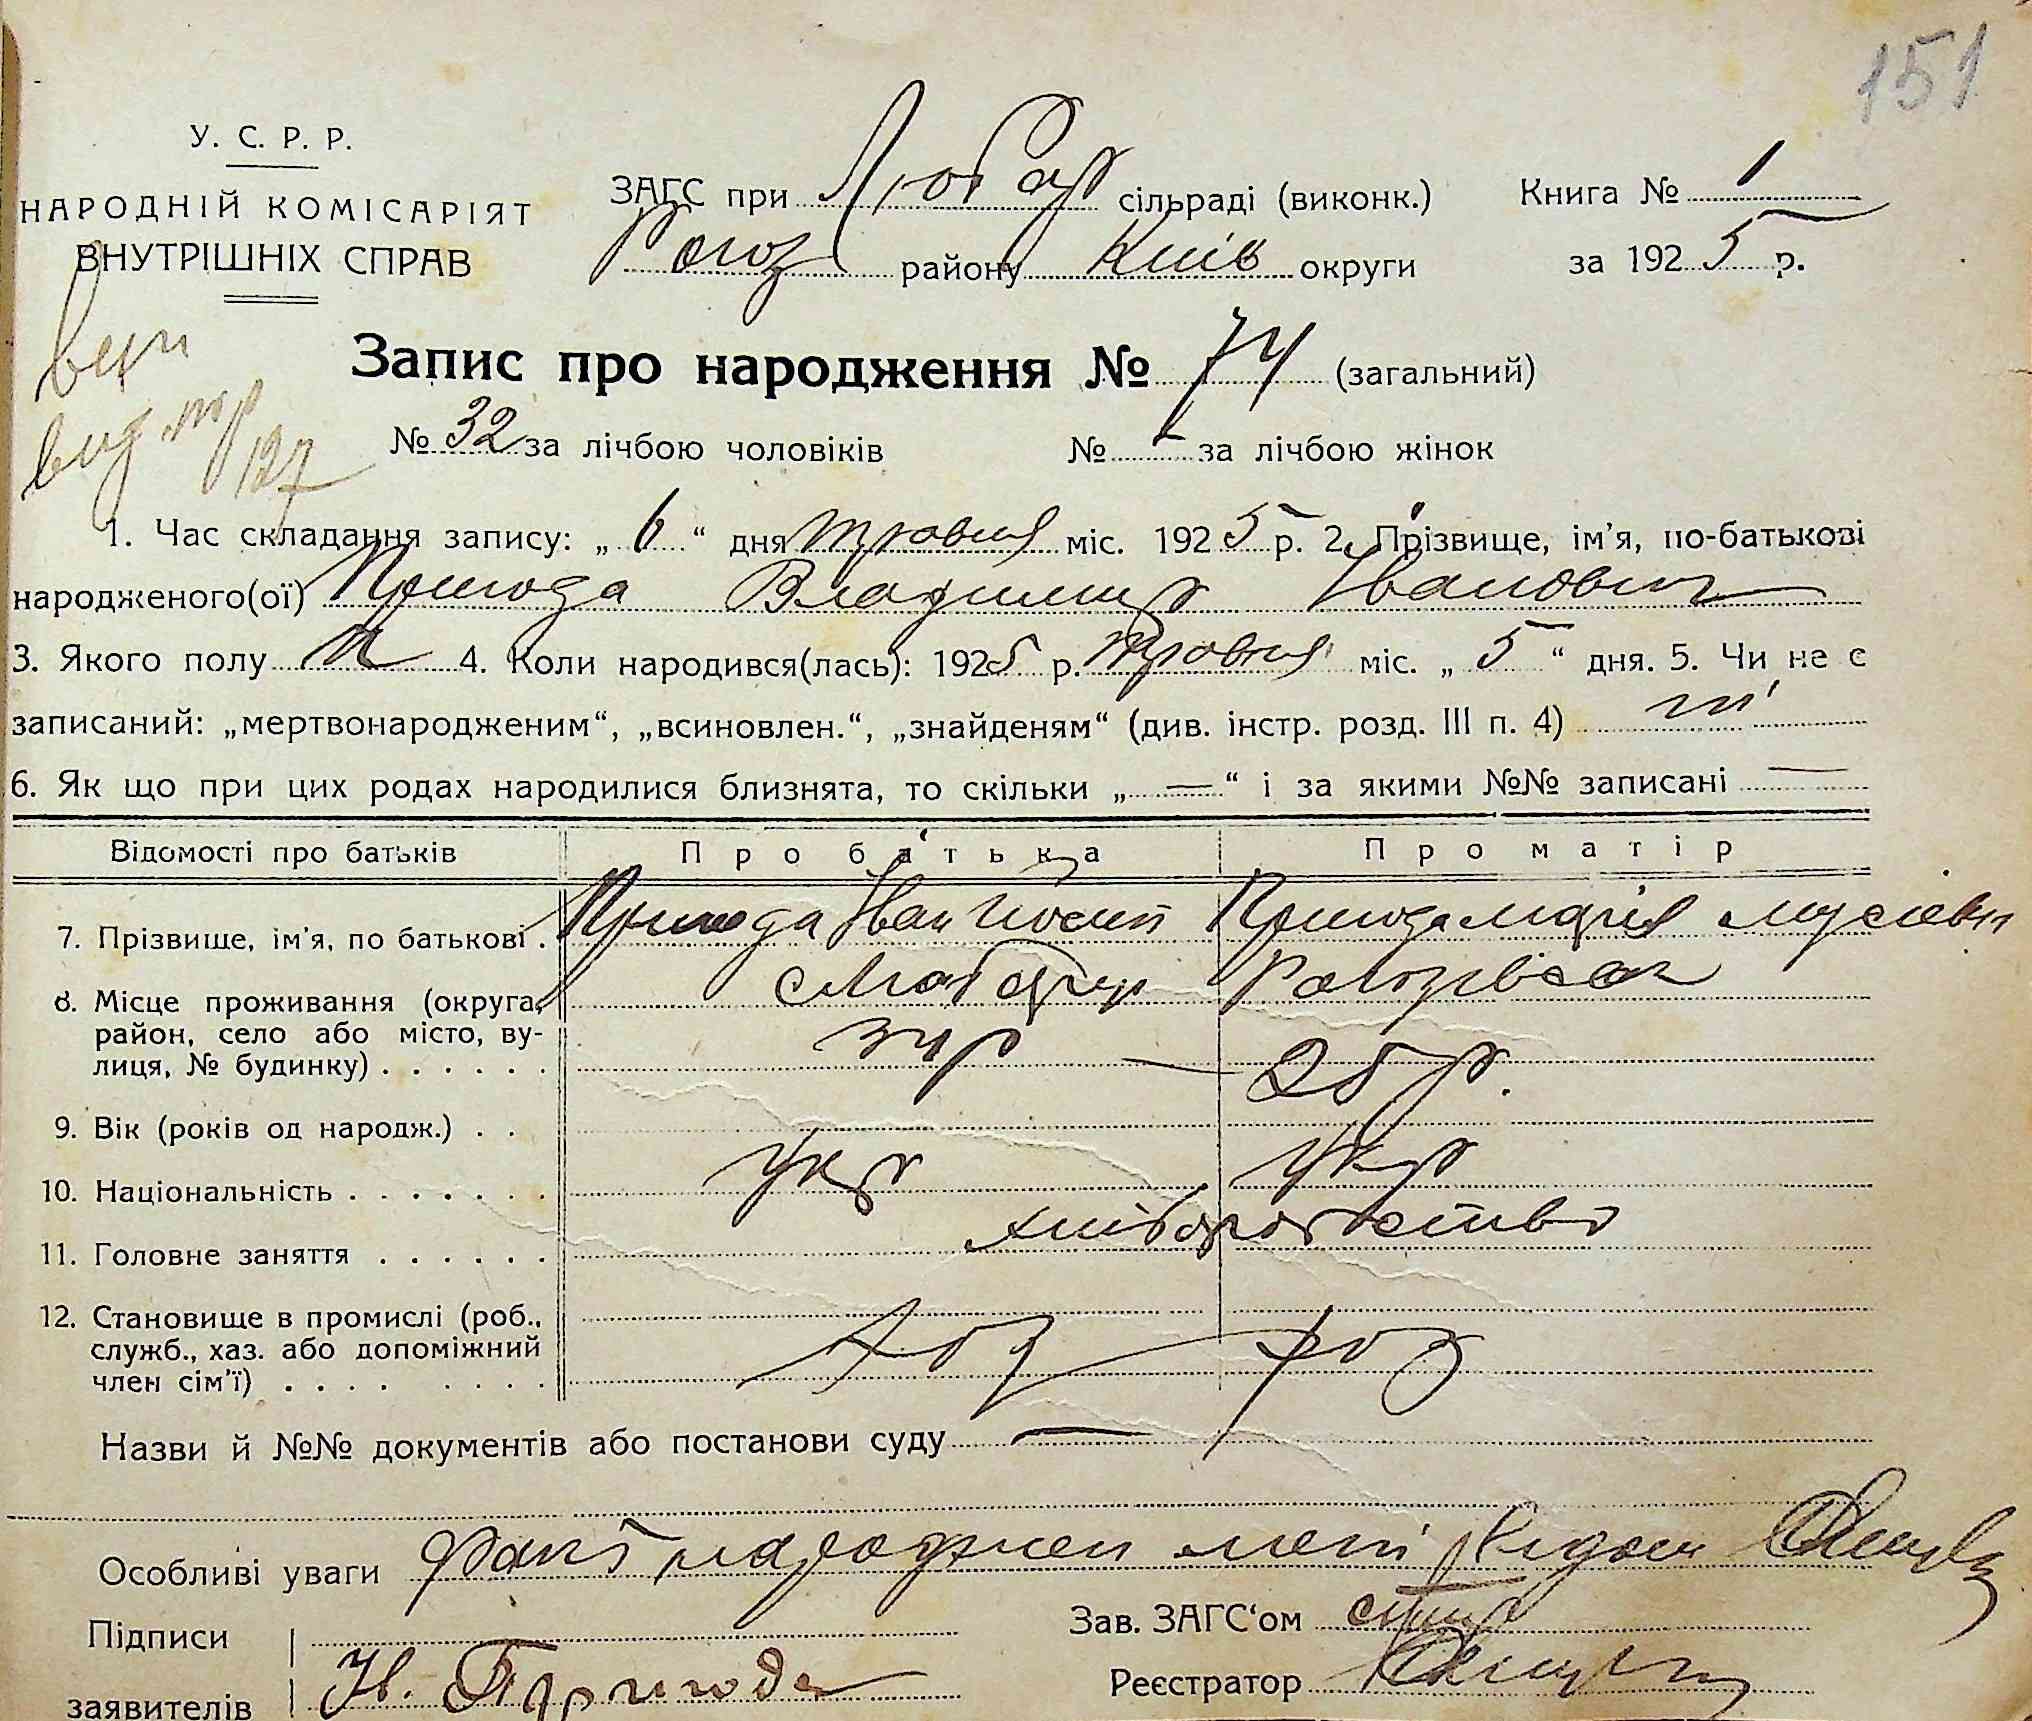 151
У. С. Р. Р.
НАРОДНІЙ КОМІСАРІЯТ
ВНУТРІШНІХ СПРАВ
ЗАГС при Любар сільраді (виконк.)
Рогоз району Київ округи
Книга № 1
за 1925 р.
Запис про народження № 74 (загальний)
№ 32 за лічбою чоловіків № - за лічбою жінок
1. Час складання запису: „ 6 “ дня травня міс. 1925 р. 2. Прізвище, ім’я, по-батькові
народженого(ої) Пригода Владимир Іванович
3. Якого полу 4. Коли народився(лась): 1925 р. травня міс. „ 5 “ дня. 5. Чи не є
записаний: „мертвонародженим“, „всиновлен.“, „знайденям“ (див. інстр. розд. III п. 4) ні
6. Як що при цих родах народилися близнята, то скільки „ — “ і за якими №№ записані —
Відомості про батьків Про батька Про матір
7. Прізвище, ім’я, по батькові . Пригода Іван Пригода Марія
8. Місце проживання (округа,
район, село або місто, ву-
лиця, № будинку) . . . . . .
9. Вік (років од народж.) . . 25 р.
10. Національність . . . . . . . Укр Укр
11. Головне заняття . . . . . . хліборобство
12. Становище в промислі (роб.,
служб., хаз. або допоміжний
член сім’ї) . . . . . . . .
Назви й №№ документів або постанови суду —
Особливі уваги Факт народжен мені відом
Підписи
заявителів Ив. Пригода
Зав. ЗАГС‘ом
Реєстратор